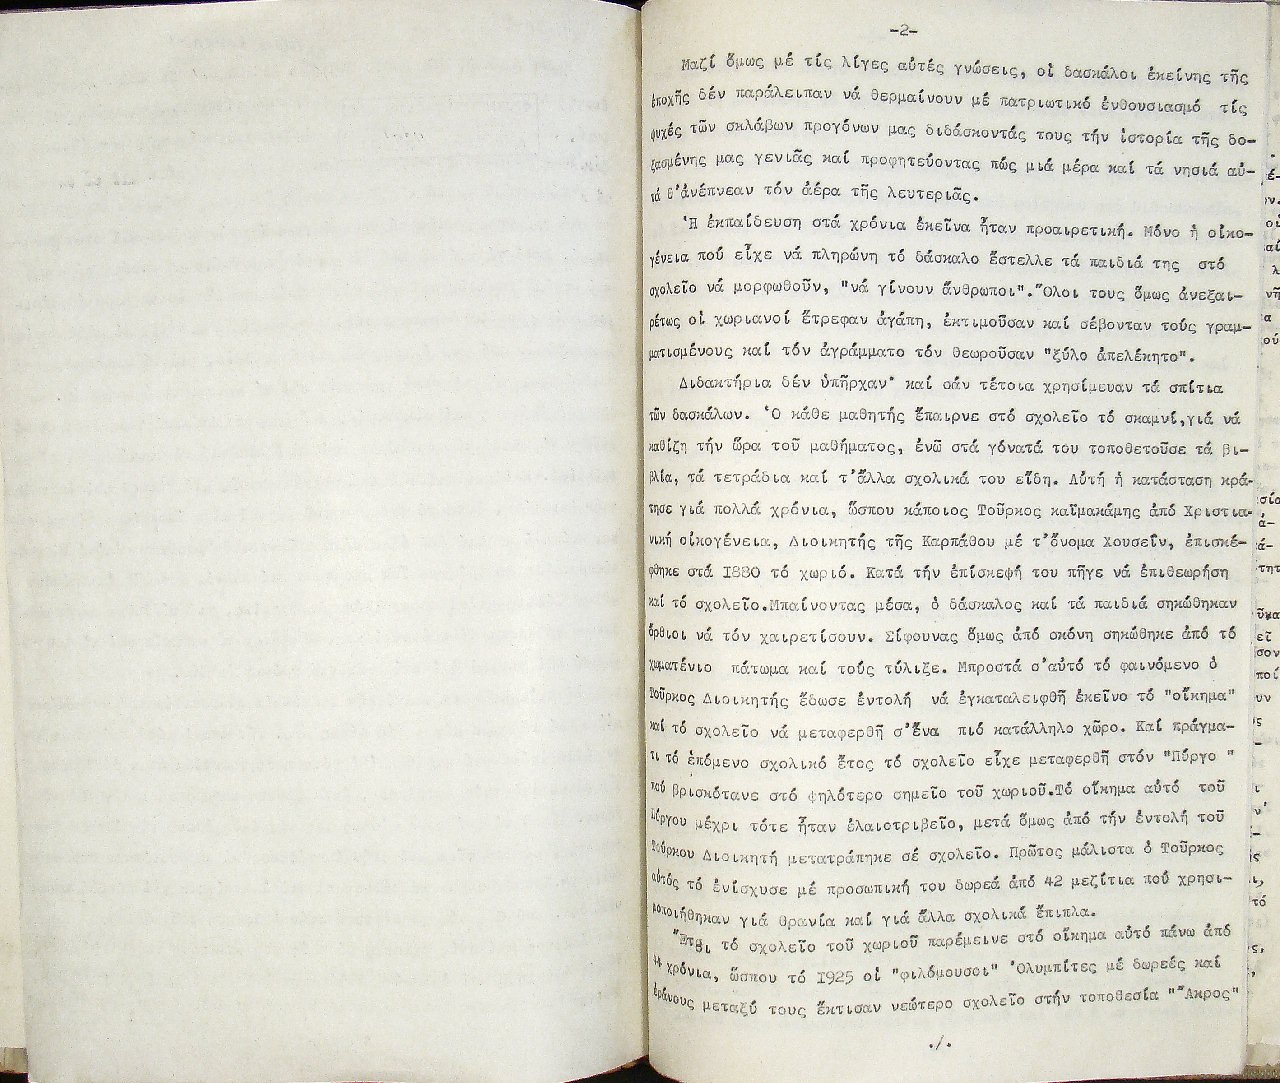 -2-
Μαζί ὅμως μέ τίς λίγες αὐτές γνώσεις, οἱ δασκάλοι ἐκείνης τῆς
ἐποχῆς δέν παράλειπαν νά θερμαίνουν μέ πατριωτικό ἐνθουσιασμό τίς
ψυχές τῶν σκλάβων προγόνων μας διδάσκοντάς τους τήν ἱστορία τῆς δο-
ξασμένης μας γενιᾶς καί προφητεύοντας πώς μιά μέρα καί τά νησιά αὐ-
τά θ'ἀνέπνεαν τόν ἀέρα τῆς λευτεριᾶς.
Ἡ ἐκπαίδευση στά χρόνια ἐκεῖνα ἦταν προαιρετική. Μόνο ἡ οἰκο-
γένεια πού εἶχε νά πληρώνη τό δάσκαλο ἔστελλε τά παιδιά της στό
σχολεῖο νά μορφωθοῦν, "νά γίνουν ἄνθρωποι". Ὅλοι τους ὅμως ἀνεξαι-
ρέτως οἱ χωριανοί ἔτρεφαν ἀγάπη, ἐκτιμοῦσαν καί σέβονταν τούς γραμ-
ματισμένους καί τόν ἀγράμματο τόν θεωροῦσαν "ξύλο ἀπελέκητο".
Διδακτήρια δέν ὑπῆρχαν· καί σάν τέτοια χρησίμευαν τά σπίτια
τῶν δασκάλων. Ὁ κάθε μαθητής ἔπαιρνε στό σχολεῖο τό σκαμνί,γιά νά
καθίζη τήν ὥρα τοῦ μαθήματος, ἐνῶ στά γόνατά του τοποθετοῦσε τά βι-
βλία, τά τετράδια καί τ'ἄλλα σχολικά του εἴδη. Αὐτή ἡ κατάσταση κρά-
τησε γιά πολλά χρόνια, ὥσπου κάποιος Τοῦρκος καϊμακάμης ἀπό Χριστια-
νική οἰκογένεια, Διοικητής τῆς Καρπάθου μέ τ'ὄνομα Χουσεΐν, ἐπισκέ-
φθηκε στά 1880 τό χωριό. Κατά τήν ἐπίσκεψή του πῆγε νά ἐπιθεωρήση
καί τό σχολεῖο.Μπαίνοντας μέσα, ὁ δάσκαλος καί τά παιδιά σηκώθηκαν
ὄρθιοι νά τόν χαιρετίσουν. Σίφουνας ὅμως ἀπό σκόνη σηκώθηκε ἀπό τό
χωματένιο πάτωμα καί τούς τύλιξε. Μπροστά σ'αὐτό τό φαινόμενο ὁ
Τοῦρκος Διοικητής ἔδωσε ἐντολή νά ἐγκαταλειφθῆ ἐκεῖνο τό "οἴκημα"
καί τό σχολεῖο νά μεταφερθῆ σ'ἕνα πιό κατάλληλο χῶρο. Καί πράγμα-
τι τό ἑπόμενο σχολικό ἔτος τό σχολεῖο εἶχε μεταφερθῆ στόν "Πύργο "
πού βρισκότανε στό ψηλότερο σημεῖο τοῦ χωριοῦ.Τό οἴκημα αὐτό τοῦ
Πύργου μέχρι τότε ἦταν ἐλαιοτριβεῖο, μετά ὅμως ἀπό τήν ἐντολή τοῦ
Τούρκου Διοικητή μετατράπηκε σέ σχολεῖο. Πρῶτος μάλιστα ὁ Τοῦρκος
αὐτός τό ἐνίσχυσε μέ προσωπική του δωρεά ἀπό 42 μεζίτια πού χρησι-
μοποιήθηκαν γιά θρανία καί γιά ἄλλα σχολικά ἔπιπλα.
Ἔτσι τό σχολεῖο τοῦ χωριοῦ παρέμεινε στό οἴκημα αὐτό πάνω ἀπό
44 χρόνια, ὥσπου τό 1925 οἱ "φιλόμουσοι" Ὀλυμπίτες μέ δωρεές καί
ἐράνους μεταξύ τους ἔκτισαν νεώτερο σχολεῖο στήν τοποθεσία "Ἄκρος"
./.